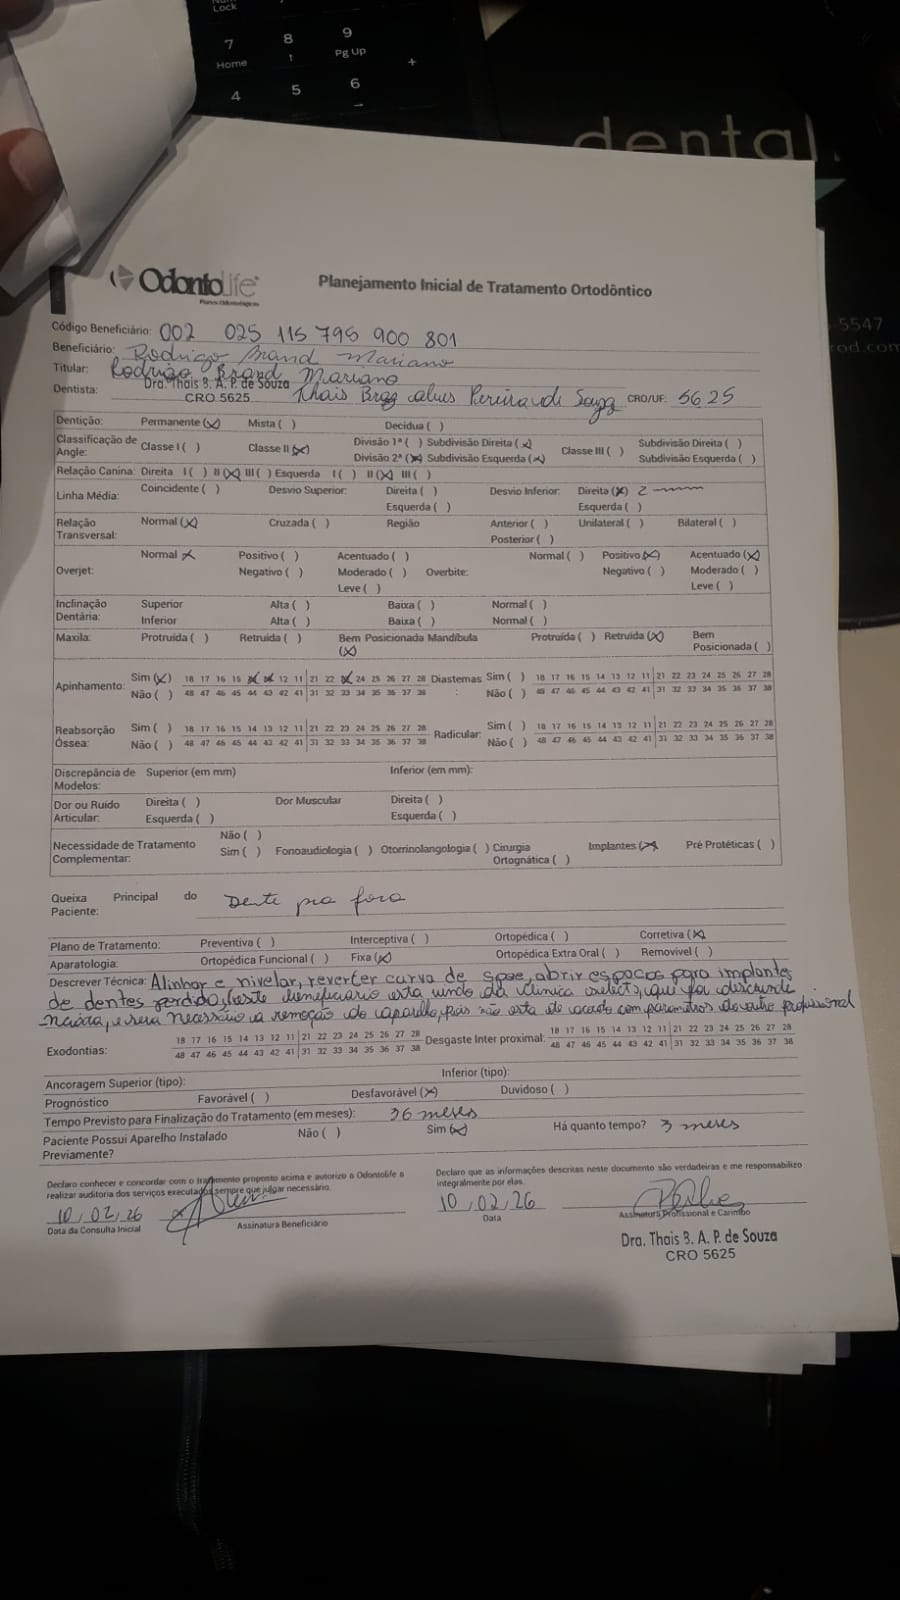 Lock
7 8 9
Home ↑ Pg Up +
4 5 6
→
dental
-5547
od.com
OdontoLife
Planos Odontológicos
Planejamento Inicial de Tratamento Ortodôntico
Código Beneficiário: 002 025 115 795 900 801
Beneficiário: Rodrigo Brand Mariano
Titular: Rodrigo Brand Mariano
Dra. Thais B. A. P. de Souza
Dentista: CRO 5625 Thais Braz Alves Pereira de Souza CRO/UF: 5625
Dentição: Permanente (x) Mista ( ) Decídua ( )
Classificação de Angle: Classe I ( ) Classe II (x) Divisão 1ª ( ) Subdivisão Direita (x) Classe III ( ) Subdivisão Direita ( )
Divisão 2ª (x) Subdivisão Esquerda (x) Subdivisão Esquerda ( )
Relação Canina: Direita I ( ) II (x) III ( ) Esquerda I ( ) II (x) III ( )
Linha Média: Coincidente ( ) Desvio Superior: Direita ( ) Desvio Inferior: Direita (x) 2 mm
Esquerda ( ) Esquerda ( )
Relação Transversal: Normal (x) Cruzada ( ) Região Anterior ( ) Unilateral ( ) Bilateral ( )
Posterior ( )
Normal x Positivo ( ) Acentuado ( ) Normal ( ) Positivo (x) Acentuado (x)
Overjet: Negativo ( ) Moderado ( ) Overbite: Negativo ( ) Moderado ( )
Leve ( ) Leve ( )
Inclinação Dentária: Superior Alta ( ) Baixa ( ) Normal ( )
Inferior Alta ( ) Baixa ( ) Normal ( )
Maxila: Protruída ( ) Retruída ( ) Bem Posicionada (x) Mandíbula Protruída ( ) Retruída (x) Bem Posicionada ( )
Apinhamento: Sim (x) 18 17 16 15 x x 12 11 21 22 x 24 25 26 27 28 Diastemas: Sim ( ) 18 17 16 15 14 13 12 11 21 22 23 24 25 26 27 28
Não ( ) 48 47 46 45 44 43 42 41 31 32 33 34 35 36 37 38 Não ( ) 48 47 46 45 44 43 42 41 31 32 33 34 35 36 37 38
Reabsorção Óssea: Sim ( ) 18 17 16 15 14 13 12 11 21 22 23 24 25 26 27 28 Radicular: Sim ( ) 18 17 16 15 14 13 12 11 21 22 23 24 25 26 27 28
Não ( ) 48 47 46 45 44 43 42 41 31 32 33 34 35 36 37 38 Não ( ) 48 47 46 45 44 43 42 41 31 32 33 34 35 36 37 38
Discrepância de Modelos: Superior (em mm) Inferior (em mm):
Dor ou Ruído Articular: Direita ( ) Dor Muscular Direita ( )
Esquerda ( ) Esquerda ( )
Não ( )
Necessidade de Tratamento Complementar: Sim ( ) Fonoaudiologia ( ) Otorrinolangologia ( ) Cirurgia Ortognática ( ) Implantes (x) Pré Protéticas ( )
Queixa Principal do Paciente: Dente pra fora
Plano de Tratamento: Preventiva ( ) Interceptiva ( ) Ortopédica ( ) Corretiva (x)
Aparatologia: Ortopédica Funcional ( ) Fixa (x) Ortopédica Extra Oral ( ) Removível ( )
Descrever Técnica: Alinhar e nivelar, reverter curva de spee, abrir espaços para implantes
de dentes perdido, (este beneficiario esta vindo da clinica select, que foi
e sera necessario a remoção do aparelho, pois não esta de acordo com parametros do outro profissional
Exodontias: 18 17 16 15 14 13 12 11 21 22 23 24 25 26 27 28 Desgaste Inter proximal: 18 17 16 15 14 13 12 11 21 22 23 24 25 26 27 28
48 47 46 45 44 43 42 41 31 32 33 34 35 36 37 38 48 47 46 45 44 43 42 41 31 32 33 34 35 36 37 38
Ancoragem Superior (tipo): Inferior (tipo):
Prognóstico Favorável ( ) Desfavorável (x) Duvidoso ( )
Tempo Previsto para Finalização do Tratamento (em meses): 36 meses
Paciente Possui Aparelho Instalado Previamente? Não ( ) Sim (x) Há quanto tempo? 3 meses
Declaro conhecer e concordar com o tratamento proposto acima e autorizo a Odontolife a
realizar auditoria dos serviços executados sempre que julgar necessário.
Declaro que as informações descritas neste documento são verdadeiras e me responsabilizo
integralmente por elas.
10,02,26
Data da Consulta Inicial Assinatura Beneficiário
10,02,26
Data Assinatura Profissional e Carimbo
Dra. Thais B. A. P. de Souza
CRO 5625